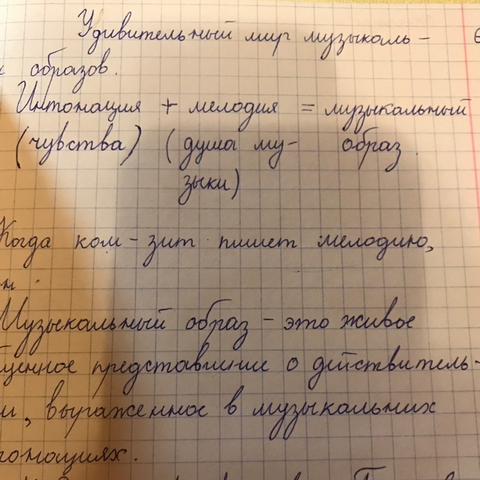 Удивительный мир музыкаль-
х образов.
Интонация + мелодия = музыкальный
(чувства) (душа му- образ.
зыки)
Когда ком-зит пишет мелодию,
н.
Музыкальный образ - это живое
щенное представление о действитель-
и, выраженное в музыкальних
тонациях.